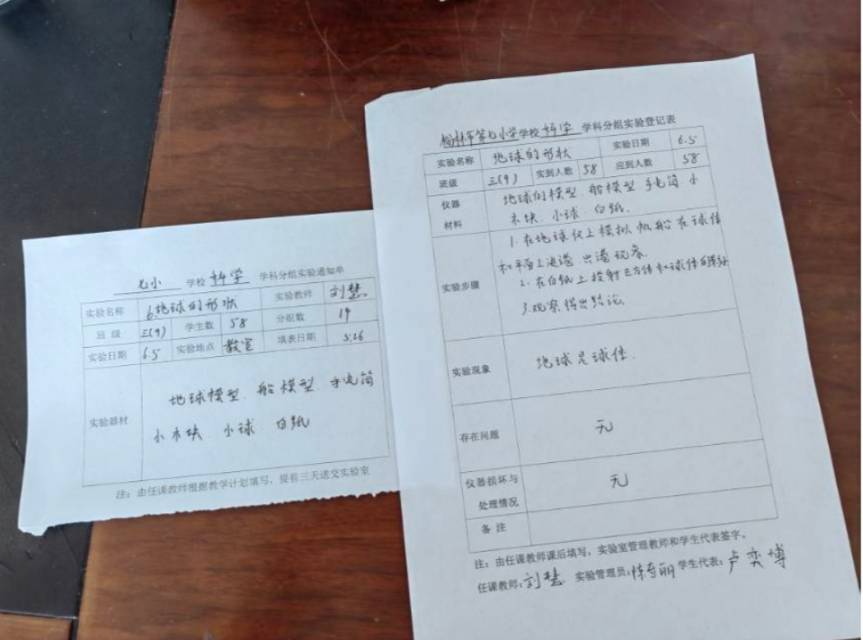 七小 学校 科学 学科分组实验通知单
实验名称 6.地球的形状 实验教师 刘慧
班级 三(9) 学生数 58 分组数 19
实验日期 6.5 实验地点 教室 填表日期 5.26
实验器材
地球模型 船模型 手电筒
小木块 小球 白纸
注:由任课教师根据教学计划填写,提前三天送交实验室
榆林市第七小学学校 科学 学科分组实验登记表
实验名称 地球的形状 实验日期 6.5
班级 三(9) 实到人数 58 应到人数 58
仪器材料
地球的模型 船模型 手电筒 小
木块 小球 白纸
实验步骤
1.在地球仪上模拟帆船在球体
和平面上进港 出港现象
2.在白纸上投射正方体和球体的
3.观察得出结论
实验现象 地球是球体
存在问题 无
仪器损坏与处理情况 无
备注
注:由任课教师课后填写,实验室管理教师和学生代表签字。
任课教师:刘慧 实验管理员: 学生代表:卢奕博